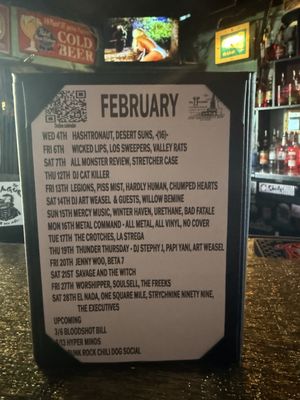 COLD
BEER
FEBRUARY
WED 4TH HASHTRONAUT, DESERT SUNS, -(16)-
FRI 6TH WICKED LIPS, LOS SWEEPERS, VALLEY RATS
SAT 7TH ALL MONSTER REVIEW, STRETCHER CASE
THU 12TH DJ CAT KILLER
FRI 13TH LEGIONS, PISS MIST, HARDLY HUMAN, CHUMPED HEARTS
SAT 14TH DJ ART WEASEL & GUESTS, WILLOW BEMINE
SUN 15TH MERCY MUSIC, WINTER HAVEN, URETHANE, BAD FATALE
MON 16TH METAL COMMAND - ALL METAL, ALL VINYL, NO COVER
TUE 17TH THE CROTCHES, LA STREGA
THU 19TH THUNDER THURSDAY - DJ STEPHY J, PAPI YANI, ART WEASEL
FRI 20TH JENNY WOO, BETA 7
SAT 21ST SAVAGE AND THE WITCH
FRI 27TH WORSHIPPER, SOULSELL, THE FREEKS
SAT 28TH EL NADA, ONE SQUARE MILE, STRYCHNINE NINETY NINE,
THE EXECUTIVES
UPCOMING
3/6 BLOODSHOT BILL
HYPER MINDS
ROCK CHILI DOG SOCIAL